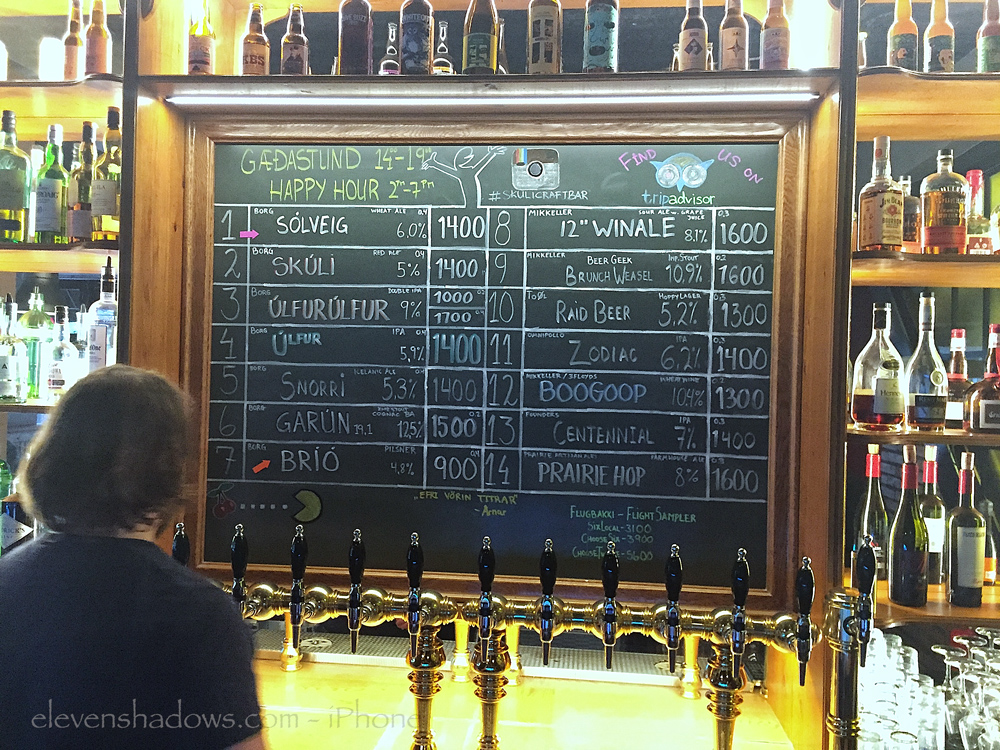 GÆÐASTUND 14⁰⁰-19⁰⁰
HAPPY HOUR 2ᴾᴹ-7ᴾᴹ
#SKULICRAFTBAR
FIND US ON
tripadvisor
1 BORG SÓLVEIG WHEAT ALE 6,0% 0,4 1400
2 BORG SKÚLI RED ALE 5% 0,4 1400
3 BORG ÚLFURÚLFUR DOUBLE IPA 9% 1000 1700
4 BORG ÚLFUR IPA 5,9% 0,4 1400
5 BORG SNORRI ICELANDIC ALE 5,3% 1400
6 BORG GARÚN 19.1 COGNAC BA 12,5% 1500
7 BORG BRÍÓ PILSNER 4,8% 900
8 MIKKELLER 12" WINALE SOUR ALE W. GRAPE JUICE 8.1% 0,3 1600
9 MIKKELLER BEER GEEK BRUNCH WEASEL IMP. STOUT 10,9% 0,2 1600
10 TO ØL RAID BEER HOPPY LAGER 5,2% 0,3 1300
11 OMNIPOLLO ZODIAC IPA 6,2% 1400
12 MIKKELLER/3FLOYDS BOOGOOP WHEATWINE 10,4% 0,2 1300
13 FOUNDERS CENTENNIAL IPA 7% 0,3 1400
14 PRAIRIE ARTISAN ALES PRAIRIE HOP FARMHOUSE ALE 8% 1600
"EFRI VÖRIN TITRAR"
- Arnar
FLUGBAKKI - FLIGHT SAMPLER
SIX LOCAL - 3100
CHOOSE SIX - 3900
5600
elevenshadows.com - iPhone